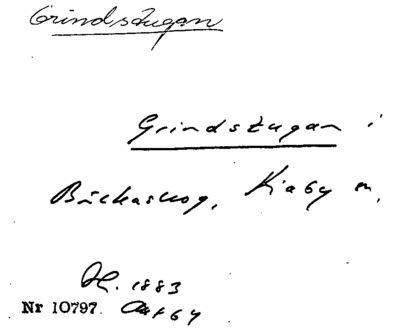 Grindstugan
Grindstugan i
Bäckaskog, Kiaby sn,
Nr 10797.